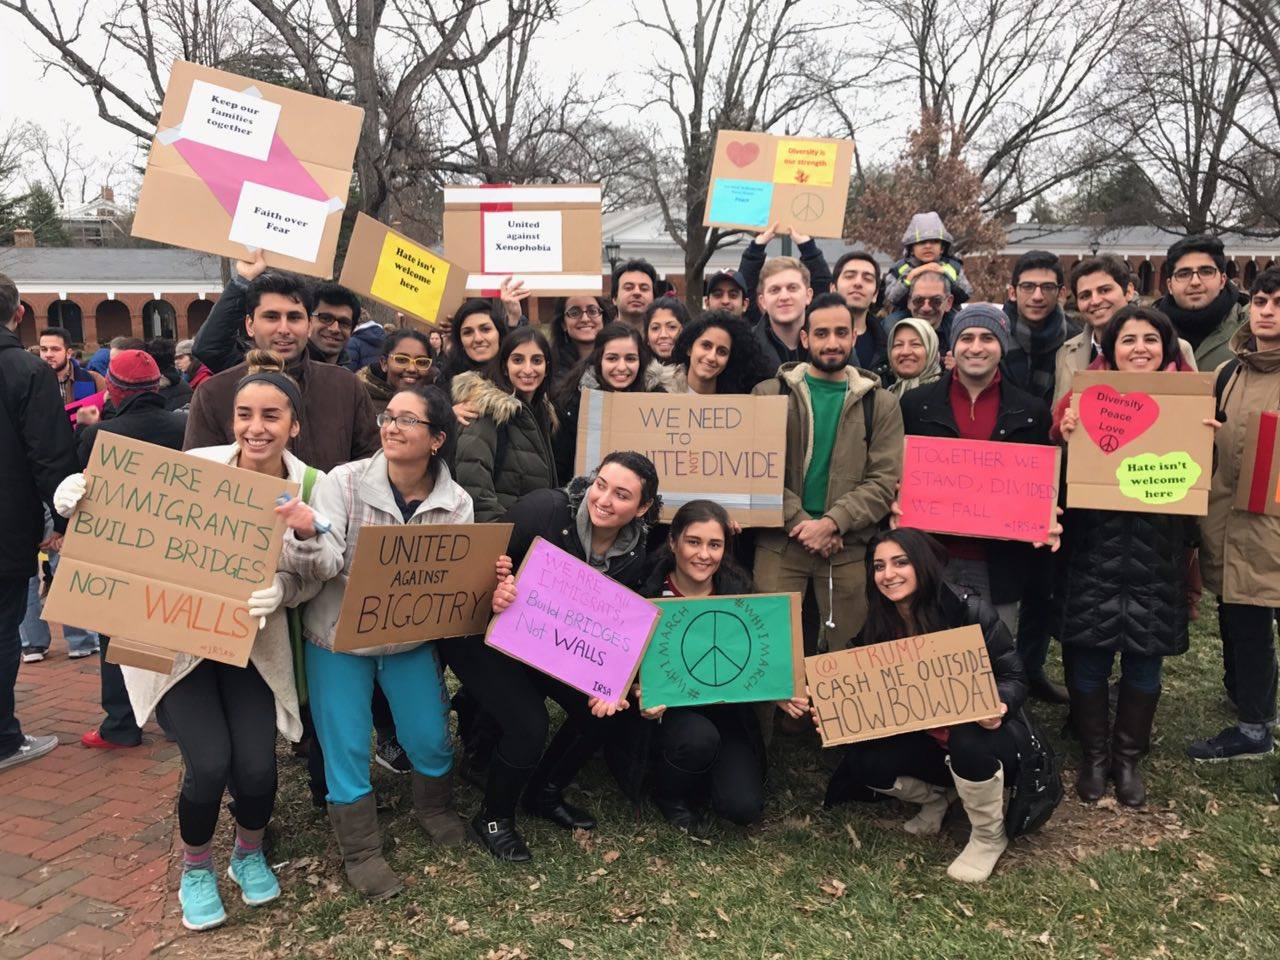 Keep our
families
together
Faith over
Fear
Hate isn't
welcome
here
United
against
Xenophobia
Diversity is
our strength
Peace
WE NEED
TO
UNITE NOT DIVIDE
TOGETHER WE
STAND, DIVIDED
WE FALL
*IRSA*
Diversity
Peace
Love
Hate isn't
welcome
here
WE ARE ALL
IMMIGRANTS
BUILD BRIDGES
NOT WALLS
*IRSA*
UNITED
AGAINST
BIGOTRY
WE ARE All
IMMIGRATS,
Build BRIDGES
Not WALLS
IRSA
#WHY I MARCH
#WHY I MARCH
@ TRUMP:
CASH ME OUTSIDE
HOWBOWDAT